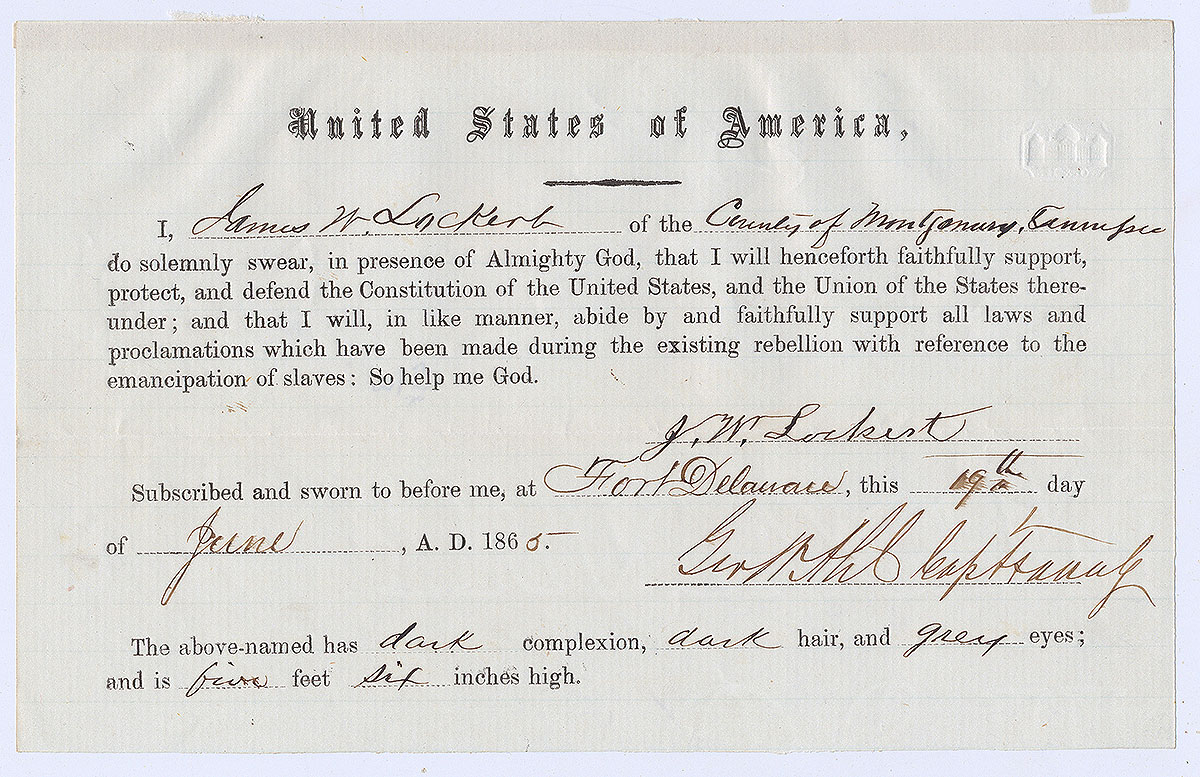 United States of America,
I, James W. Lockert of the County of Montgomery, Tennessee
do solemnly swear, in presence of Almighty God, that I will henceforth faithfully support,
protect, and defend the Constitution of the United States, and the Union of the States there-
under; and that I will, in like manner, abide by and faithfully support all laws and
proclamations which have been made during the existing rebellion with reference to the
emancipation of slaves: So help me God.
J. W. Lockert
Subscribed and sworn to before me, at Fort Delaware, this 19th day
of June, A. D. 1865.
Geo W Ahl Capt
The above-named has dark complexion, dark hair, and grey eyes;
and is five feet six inches high.